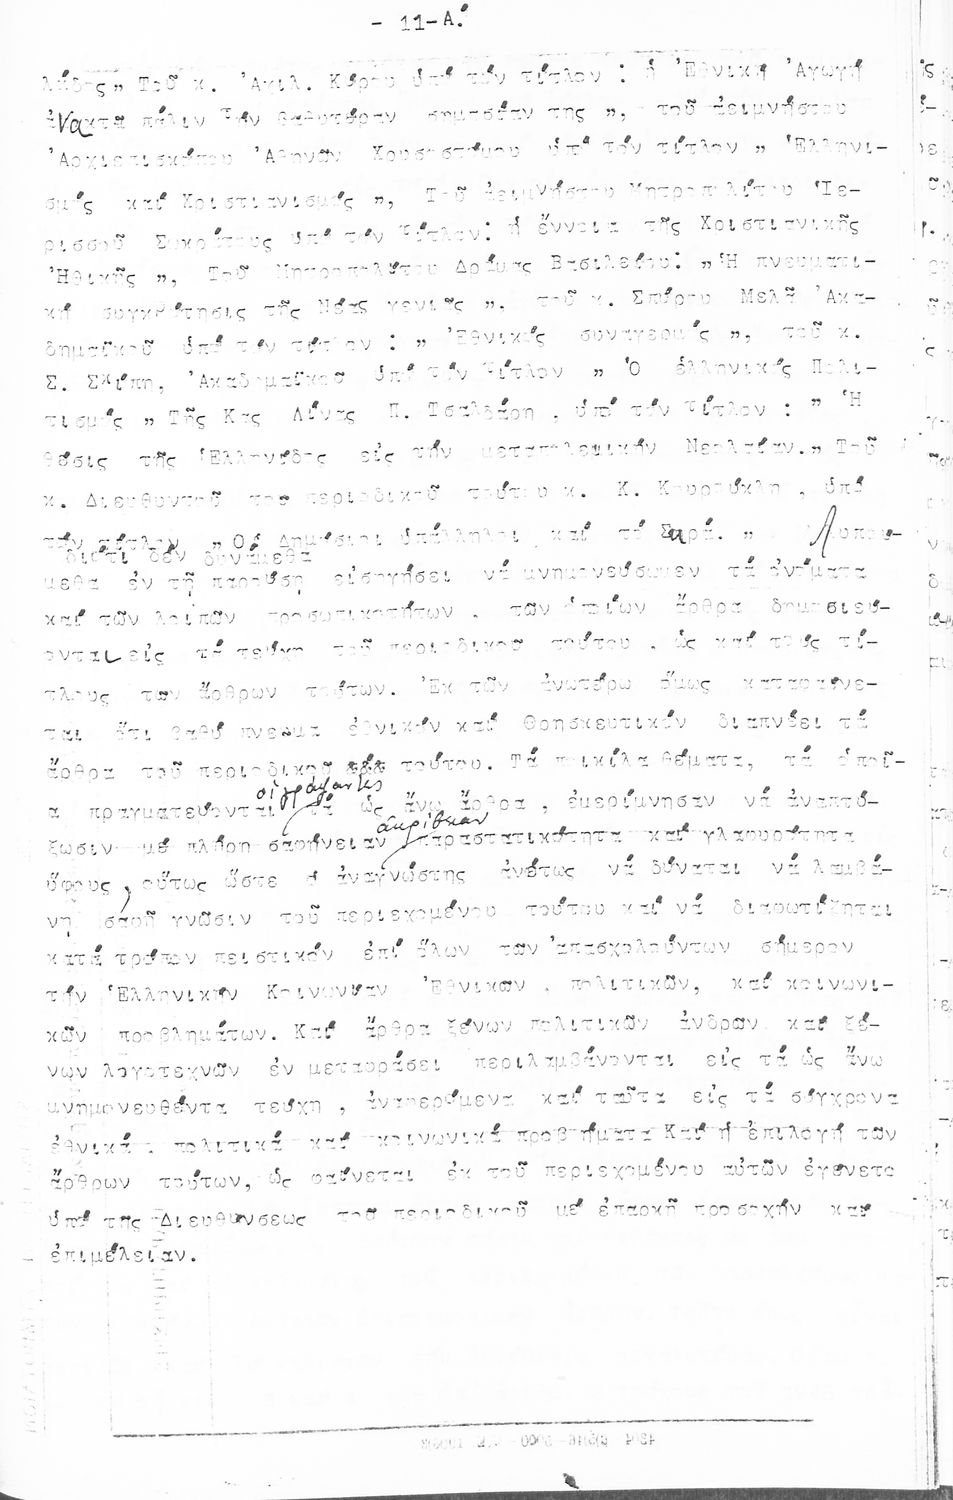 - 11-Α.
λάδος„ Τοῦ κ. Ἀχιλ. Κύρου ὑπό τόν τίτλον : ἡ Ἐθνική Ἀγωγή
ἀνακτᾶ πάλιν τήν βαθυτέραν σημασίαν της „, τοῦ ἀειμνήστου
Ἀρχιεπισκόπου Ἀθηνῶν Χρυσοστόμου ὑπό τόν τίτλον „ Ἑλληνι-
σμός καί Χριστιανισμός „, Τοῦ ἀειμνήστου Μητροπολίτου Ἱε-
ρισσοῦ Σωκράτους ὑπό τόν τίτλον: ἡ ἔννοια τῆς Χριστιανικῆς
Ἠθικῆς „, Τοῦ Μητροπολίτου Δράμας Βασιλείου: „Ἡ πνευματι-
κή συγκρότησις τῆς Νέας γενιᾶς „, τοῦ κ. Σπύρου Μελᾶ Ἀκα-
δημαϊκοῦ ὑπό τόν τίτλον : „ Ἐθνικός συναγερμός „, τοῦ κ.
Σ. Σκίπη, Ἀκαδημαϊκοῦ ὑπό τόν τίτλον „ Ὁ ἑλληνικός Πολι-
τισμός „ Τῆς Κας Λίνας Π. Τσαλδάρη , ὑπό τόν τίτλον : „ Ἡ
θέσις τῆς Ἑλληνίδος εἰς τήν μεταπολεμικήν Νεολαίαν.„ Τοῦ
κ. Διευθυντοῦ τοῦ περιοδικοῦ τούτου κ. Κ. Κουρούκλη , ὑπό
τόν τίτλον „ Οἱ Δημόσιοι ὑπάλληλοι καί τό Σῶμα. „ Λυπού-
διότι δέν δυνάμεθα
μεθα ἐν τῇ παρούσῃ εἰσηγήσει νά μνημονεύσωμεν τά ὀνόματα
καί τῶν λοιπῶν προσωπικοτήτων , τῶν ὁποίων ἄρθρα δημοσιεύ-
ονται εἰς τά τεύχη τοῦ περιοδικοῦ τούτου , ὡς καί τούς τί-
τλους τῶν ἄρθρων τούτων. Ἐκ τῶν ἀνωτέρω ὅμως καταφαίνε-
ται ὅτι βαθύ πνεῦμα ἐθνικόν καί θρησκευτικόν διαπνέει τά
ἄρθρα τοῦ περιοδικοῦ τούτου. Τά ποικίλα θέματα, τά ὁποῖ-
οἱ γράψαντες
α πραγματεύονται τά ὡς ἄνω ἄρθρα , ἐμερίμνησαν νά ἀναπτύ-
ἀκρίβειαν
ξωσιν μέ πλήρη σαφήνειαν παραστατικότητα καί γλαφυρότητα
ὕφους , οὕτως ὥστε ὁ ἀναγνώστης ἀνέτως νά δύναται νά λαμβά-
νῃ σαφῆ γνῶσιν τοῦ περιεχομένου τούτου καί νά διαφωτίζηται
κατά τρόπον πειστικόν ἐπί ὅλων τῶν ἀπασχολούντων σήμερον
τήν Ἑλληνικήν Κοινωνίαν Ἐθνικῶν , πολιτικῶν, καί κοινωνι-
κῶν προβλημάτων. Καί ἄρθρα ξένων πολιτικῶν ἀνδρῶν καί ξέ-
νων λογοτεχνῶν ἐν μεταφράσει περιλαμβάνονται εἰς τά ὡς ἄνω
μνημονευθέντα τεύχη , ἀναφερόμενα καί ταῦτα εἰς τά σύγχρονα
ἐθνικά , πολιτικά καί κοινωνικά προβλήματα Καί ἡ ἐπιλογή τῶν
ἄρθρων τούτων, ὡς φαίνεται ἐκ τοῦ περιεχομένου αὐτῶν ἐγένετο
ὑπό τῆς Διευθύνσεως τοῦ περιοδικοῦ μέ ἐπαρκῆ προσοχήν καί
ἐπιμέλειαν.